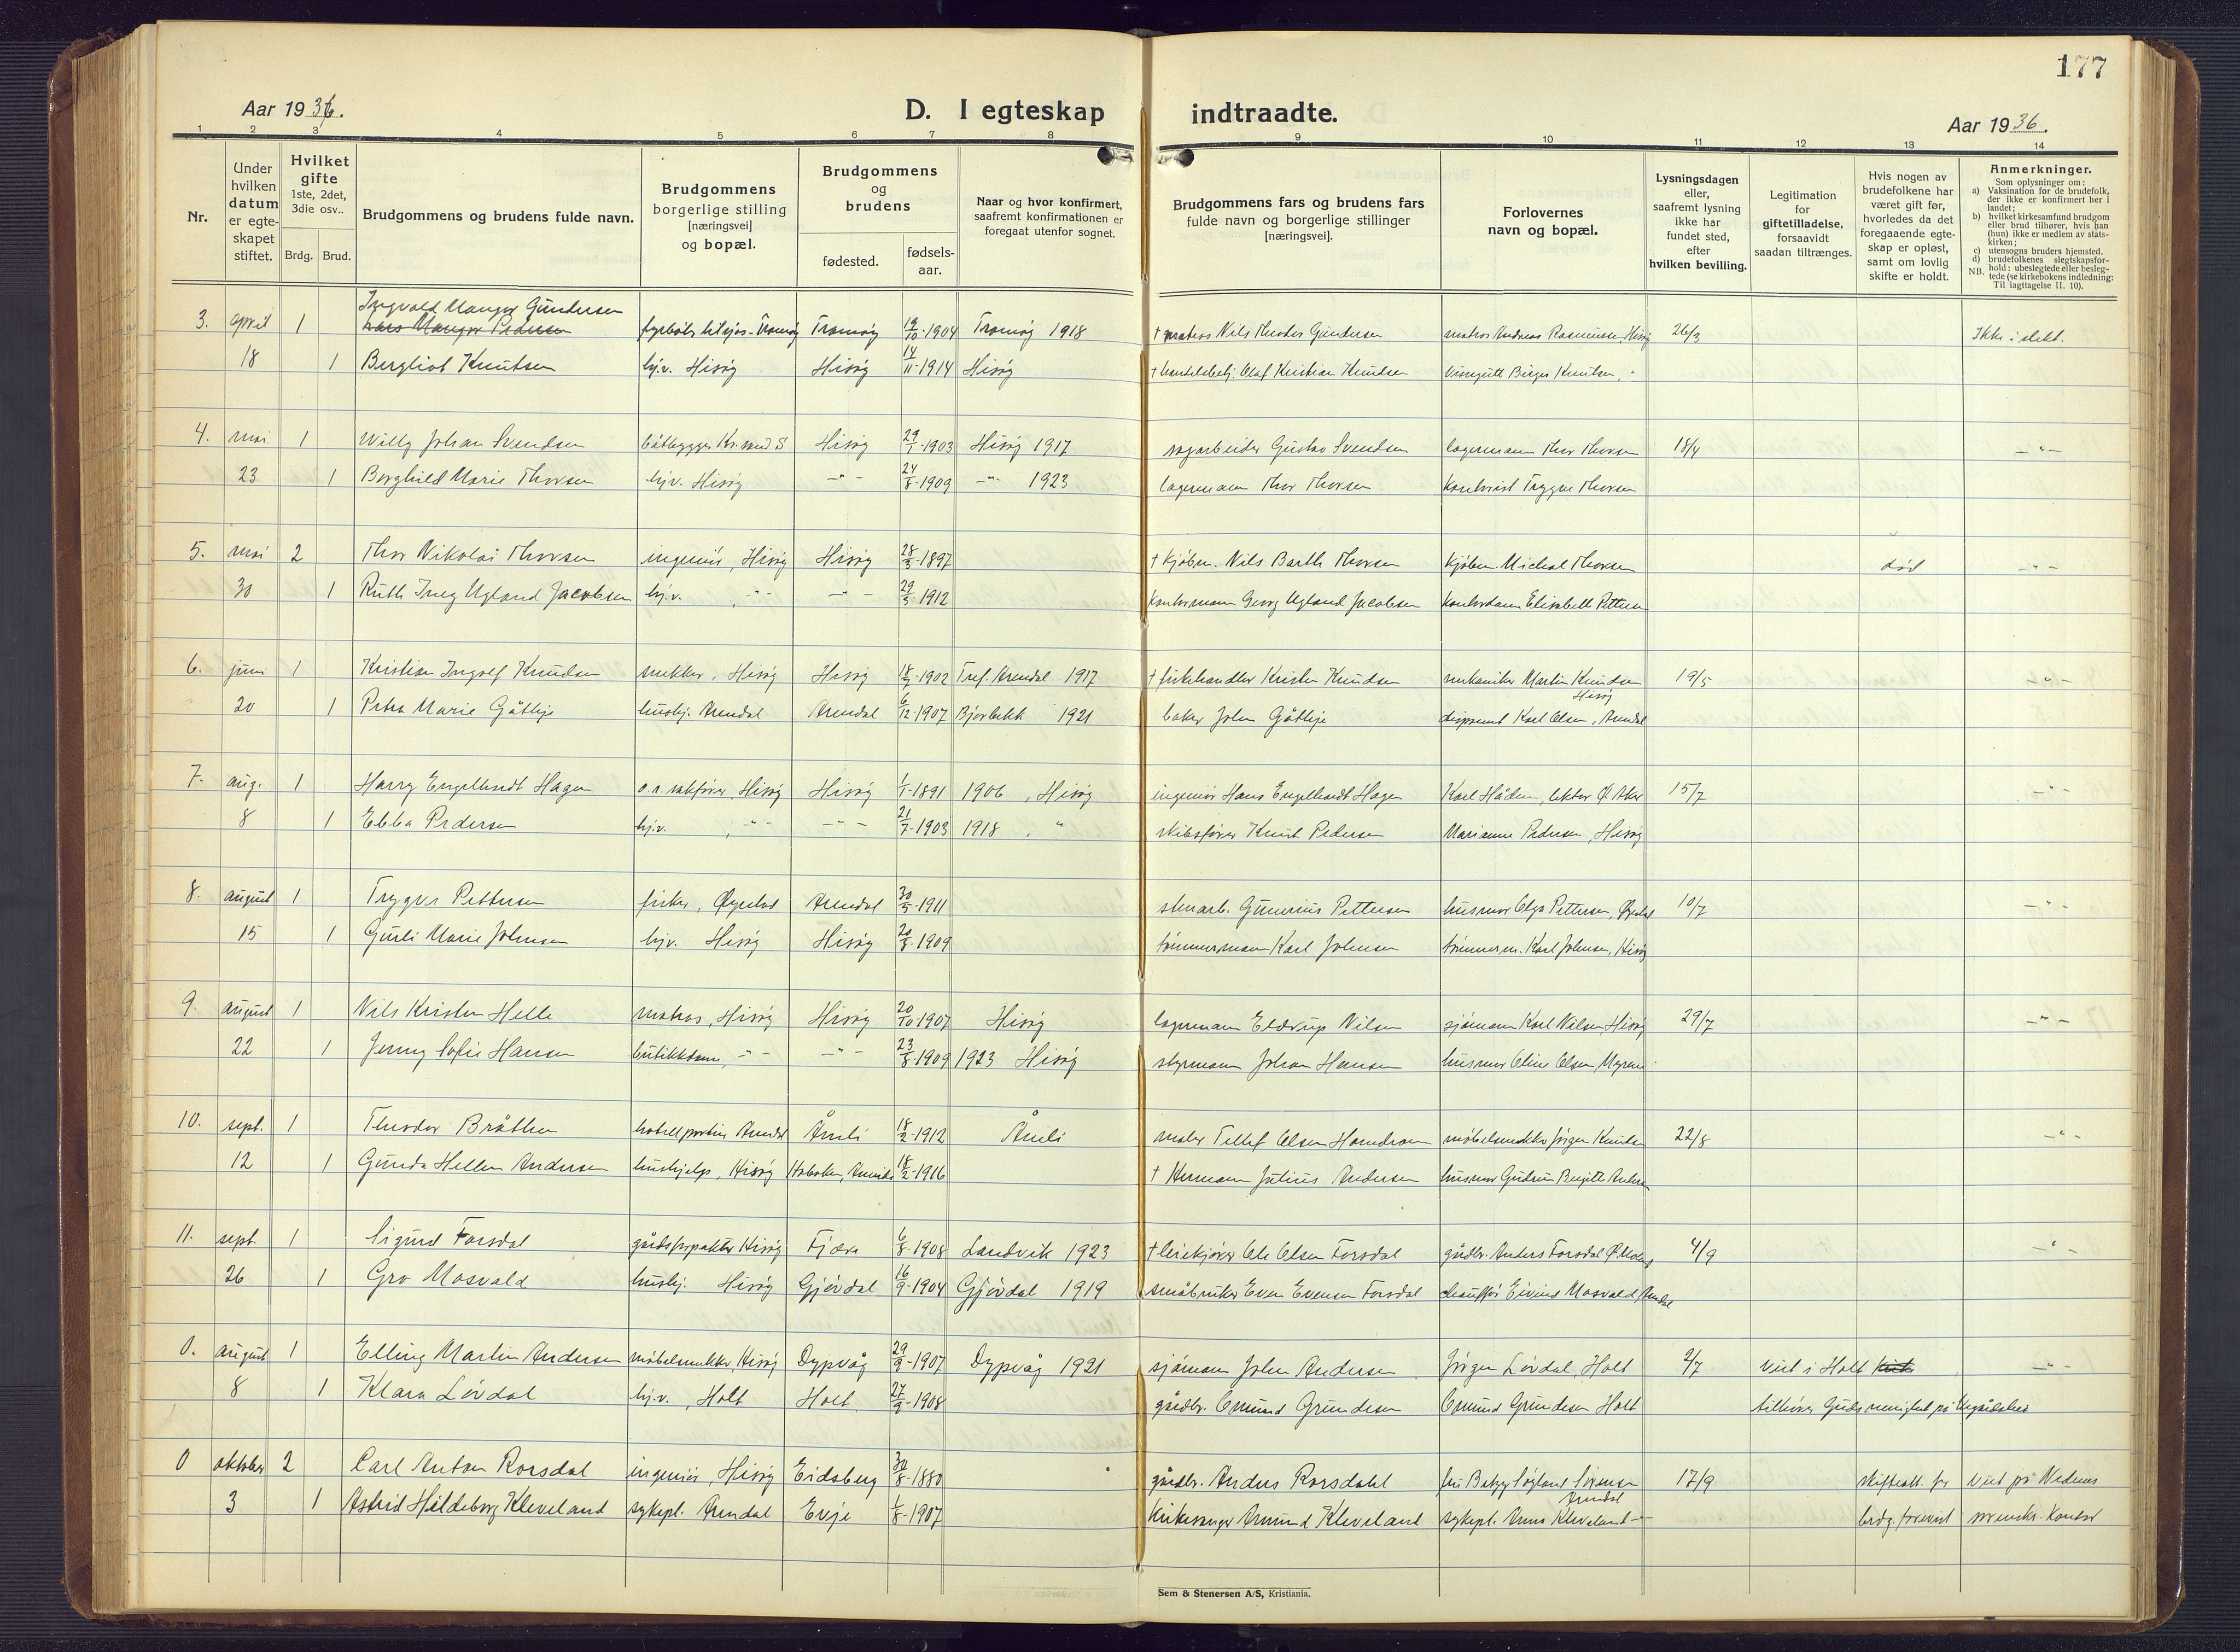 177
Aar 1936.
D. I egteskap indtraadte.
Aar 1936.
1 2 3 4 5 6 7 8 9 10 11 12 13 14
Nr.
Under hvilken datum er egteskapet stiftet.
Hvilket gifte 1ste, 2det, 3die osv..
Brdg. Brud.
Brudgommens og brudens fulde navn.
Brudgommens borgerlige stilling [næringsvei] og bopæl.
Brudgommens og brudens
fødested. fødsels-aar.
Naar og hvor konfirmert, saafremt konfirmationen er foregaat utenfor sognet.
Brudgommens fars og brudens fars fulde navn og borgerlige stillinger [næringsvei].
Forlovernes navn og bopæl.
Lysningsdagen eller, saafremt lysning ikke har fundet sted, efter hvilken bevilling.
Legitimation for giftetilladelse, forsaavidt saadan tiltrænges.
Hvis nogen av brudefolkene har været gift før, hvorledes da det foregaaende egteskap er opløst, samt om lovlig skifte er holdt.
Anmerkninger.
Som oplysninger om:
a) Vaksination for de brudefolk, der ikke er konfirmert her i landet;
b) hvilket kirkesamfund brudgom eller brud tilhører, hvis han (hun) ikke er medlem av statskirken;
c) utensogns bruders hjemsted.
d) brudefolkenes slegtskapsforhold: ubeslegtede eller beslegtede (se kirkebokens indledning:
NB. Til iagttagelse II. 10).
3. april 1 Ingvald Manger Gundersen Tromøy 19/10-1904 Tromøy 1918 † matros Nils Theodor Gundersen matros Andreas Rasmussen, Hisøy 26/3 Ikke i slekt.
18 1 Bergliot Knutsen hj.v. Hisøy Hisøy 14/11-1914 Hisøy † Olaf Kristian Knudsen visergutt Birger Knutsen, "
4. mai 1 Willy Johan Svendsen båtbygger Kr.sand S Hisøy 29/1-1903 Hisøy 1917 sagarbeider Gustav Svendsen lagermann Thor Thorsen 18/4 -"-
23 1 Borghild Marie Thorsen hj.v. Hisøy -"- 24/8-1909 -"- 1923 lagermann Thor Thorsen kontorist Trygve Thorsen
5. mai 2 Thor Nikolai Thorsen ingeniør, Hisøy Hisøy 28/3-1897 † kjøbm. Nils Barth Thorsen kjøbm. Michal Thorsen død -"-
30 1 Ruth Inez Ugland Jacobsen hj.v. , -"- -"- 29/3-1912 kontormann Georg Ugland Jacobsen kontordame Elisabeth Pettersen
6. juni 1 Kristian Ingolf Knudsen snekker, Hisøy Hisøy 18/7-1902 Tref. Arendal 1917 † fiskehandler Kristen Knudsen mekaniker Martin Knudsen Hisøy 19/5 -"-
20 1 Petra Marie Gåthje hushj. Arendal Arendal 6/12-1907 Bjorbekk 1921 baker John Gåthje disponent Karl Olsen, Arendal
7. aug. 1 Harry Engelhardt Hagen o.r. sakfører, Hisøy Hisøy 1/1-1891 1906, Hisøy ingeniør Hans Engelhardt Hagen Karl Håden, lektor Ø. Aker 15/7 -"-
8 1 Ebba Pedersen hj.v. , -"- -"- 21/7-1903 1918, " skibsfører Knut Pedersen Marianne Pedersen, Hisøy
8. august 1 Trygve Pettersen fisker, Øyestad Arendal 30/5-1911 stenarb. Gunerius Pettersen husmor Olga Pettersen, Øyestad 10/7 -"-
15 1 Guri Marie Johnsen hj.v. Hisøy Hisøy 20/8-1909 tømmermann Karl Johnsen tømmerm. Karl Johnsen, Hisøy
9. august 1 Nils Kristen Helle matros, Hisøy Hisøy 20/10-1907 Hisøy lagermann Eldrup Nilsen sjømann Karl Nilsen Hisøy 29/7 -"-
22 1 Jenny Sofie Hansen butikkdame, -"- -"- 23/8-1909 1923 Hisøy styrmann Johan Hansen husmor Oline Olsen, Myrene
10. sept. 1 Theodor Bråthen hotellportier Arendal Åmli 18/2-1912 Åmli maler Tellef Olsen møbelsnekker Jørgen Knutsen 22/8 -"-
12 1 Gunda Hellen Andersen hushjelp, Hisøy Hoboken, Amerika 18/2-1916 † Herman Julius Andersen husmor Gudrun Birgitte Andersen
11. sept. 1 Sigurd Forsdal gårdsforpakter Hisøy Fjære 6/8-1908 Landvik 1923 Ole Olsen Forsdal gårdbr. Anders Forsdal 4/9 -"-
26 1 Gro Mosvald hushj. Hisøy Gjövdal 16/9-1904 Gjövdal 1919 småbruker Even Evensen Forsdal chauffør Eivind Mosvald, Arendal
0. august 1 Elling Martin Andersen møbelsnekker, Hisøy Dypvåg 29/9-1907 Dypvåg 1921 sjømann John Andersen Jørgen Lövdal, Holt 2/7 viet i Holt -"-
8 1 Klara Lövdal hj.v., Holt Holt 27/9-1908 gårdbr. Omund Grundesen Omund Grundesen Holt tilhører Guds menighet på
0 oktober 2 Carl Anton Rorsdal ingeniør, Hisøy Eidsberg 30/8-1880 gårdbr. Anders Rorsdahl fru Betzy Søgland Sørensen Arendal 17/9 skifteatt. for viet på Nedenes
3 1 Astrid Hildeborg Kleveland sykepl. Arendal Evje 1/8-1907 kirkesanger Amund Kleveland sykepl. Anna Kleveland -"- brdg. forevist sorenskr. kontor
Sem & Stenersen A/S, Kristiania.